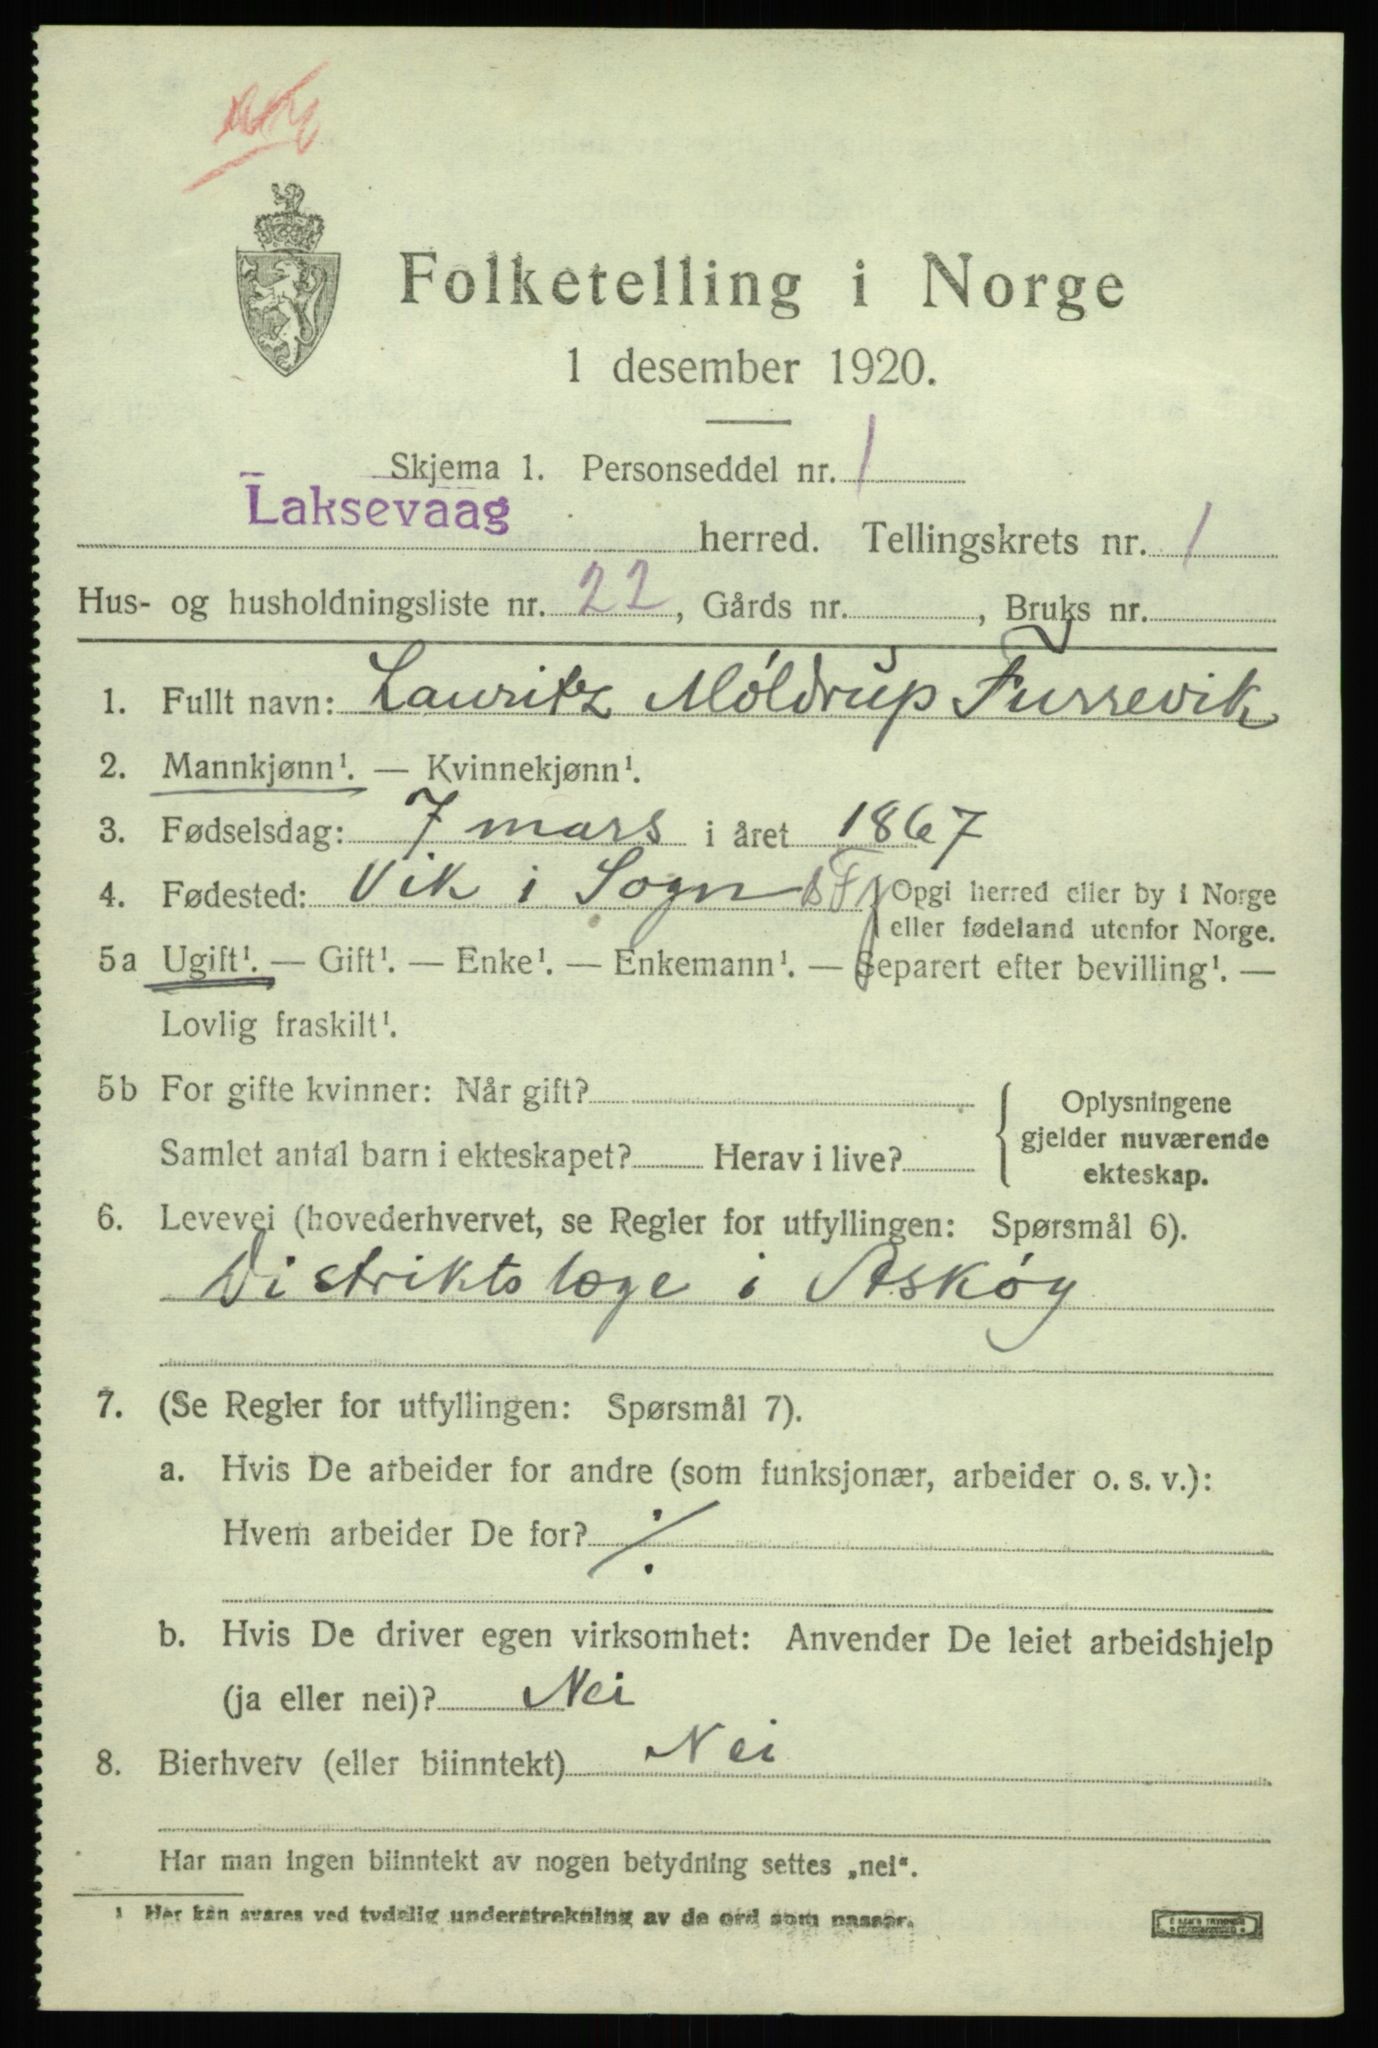 Folketelling i Norge
1 desember 1920.
Skjema 1. Personseddel nr. 1
Laksevaag herred. Tellingskrets nr. 1
Hus- og husholdningsliste nr. 22, Gårds nr. , Bruks nr.
1. Fullt navn: Lauritz Móldrup Furrevik
2. Mannkjønn¹. — Kvinnekjønn¹.
3. Fødselsdag: 7 mars i året 1867
4. Fødested: Vik i Sogn s Fj Opgi herred eller by i Norge
eller fødeland utenfor Norge.
5a Ugift¹. — Gift¹. — Enke¹. — Enkemann¹. — Separert efter bevilling¹. —
Lovlig fraskilt¹.
5b For gifte kvinner: Når gift?
Samlet antal barn i ekteskapet? Herav i live?
Oplysningene
gjelder nuværende
ekteskap.
6. Levevei (hovederhvervet, se Regler for utfyllingen: Spørsmål 6).
Distriktslæge i Askóy
7. (Se Regler for utfyllingen: Spørsmål 7).
a. Hvis De arbeider for andre (som funksjonær, arbeider o. s. v.):
Hvem arbeider De for? ·/.
b. Hvis De driver egen virksomhet: Anvender De leiet arbeidshjelp
(ja eller nei)? Nei
8. Bierhverv (eller biinntekt) Nei
Har man ingen biinntekt av nogen betydning settes „nei“.
¹ Her kan svares ved tydelig understrekning av de ord som passer.